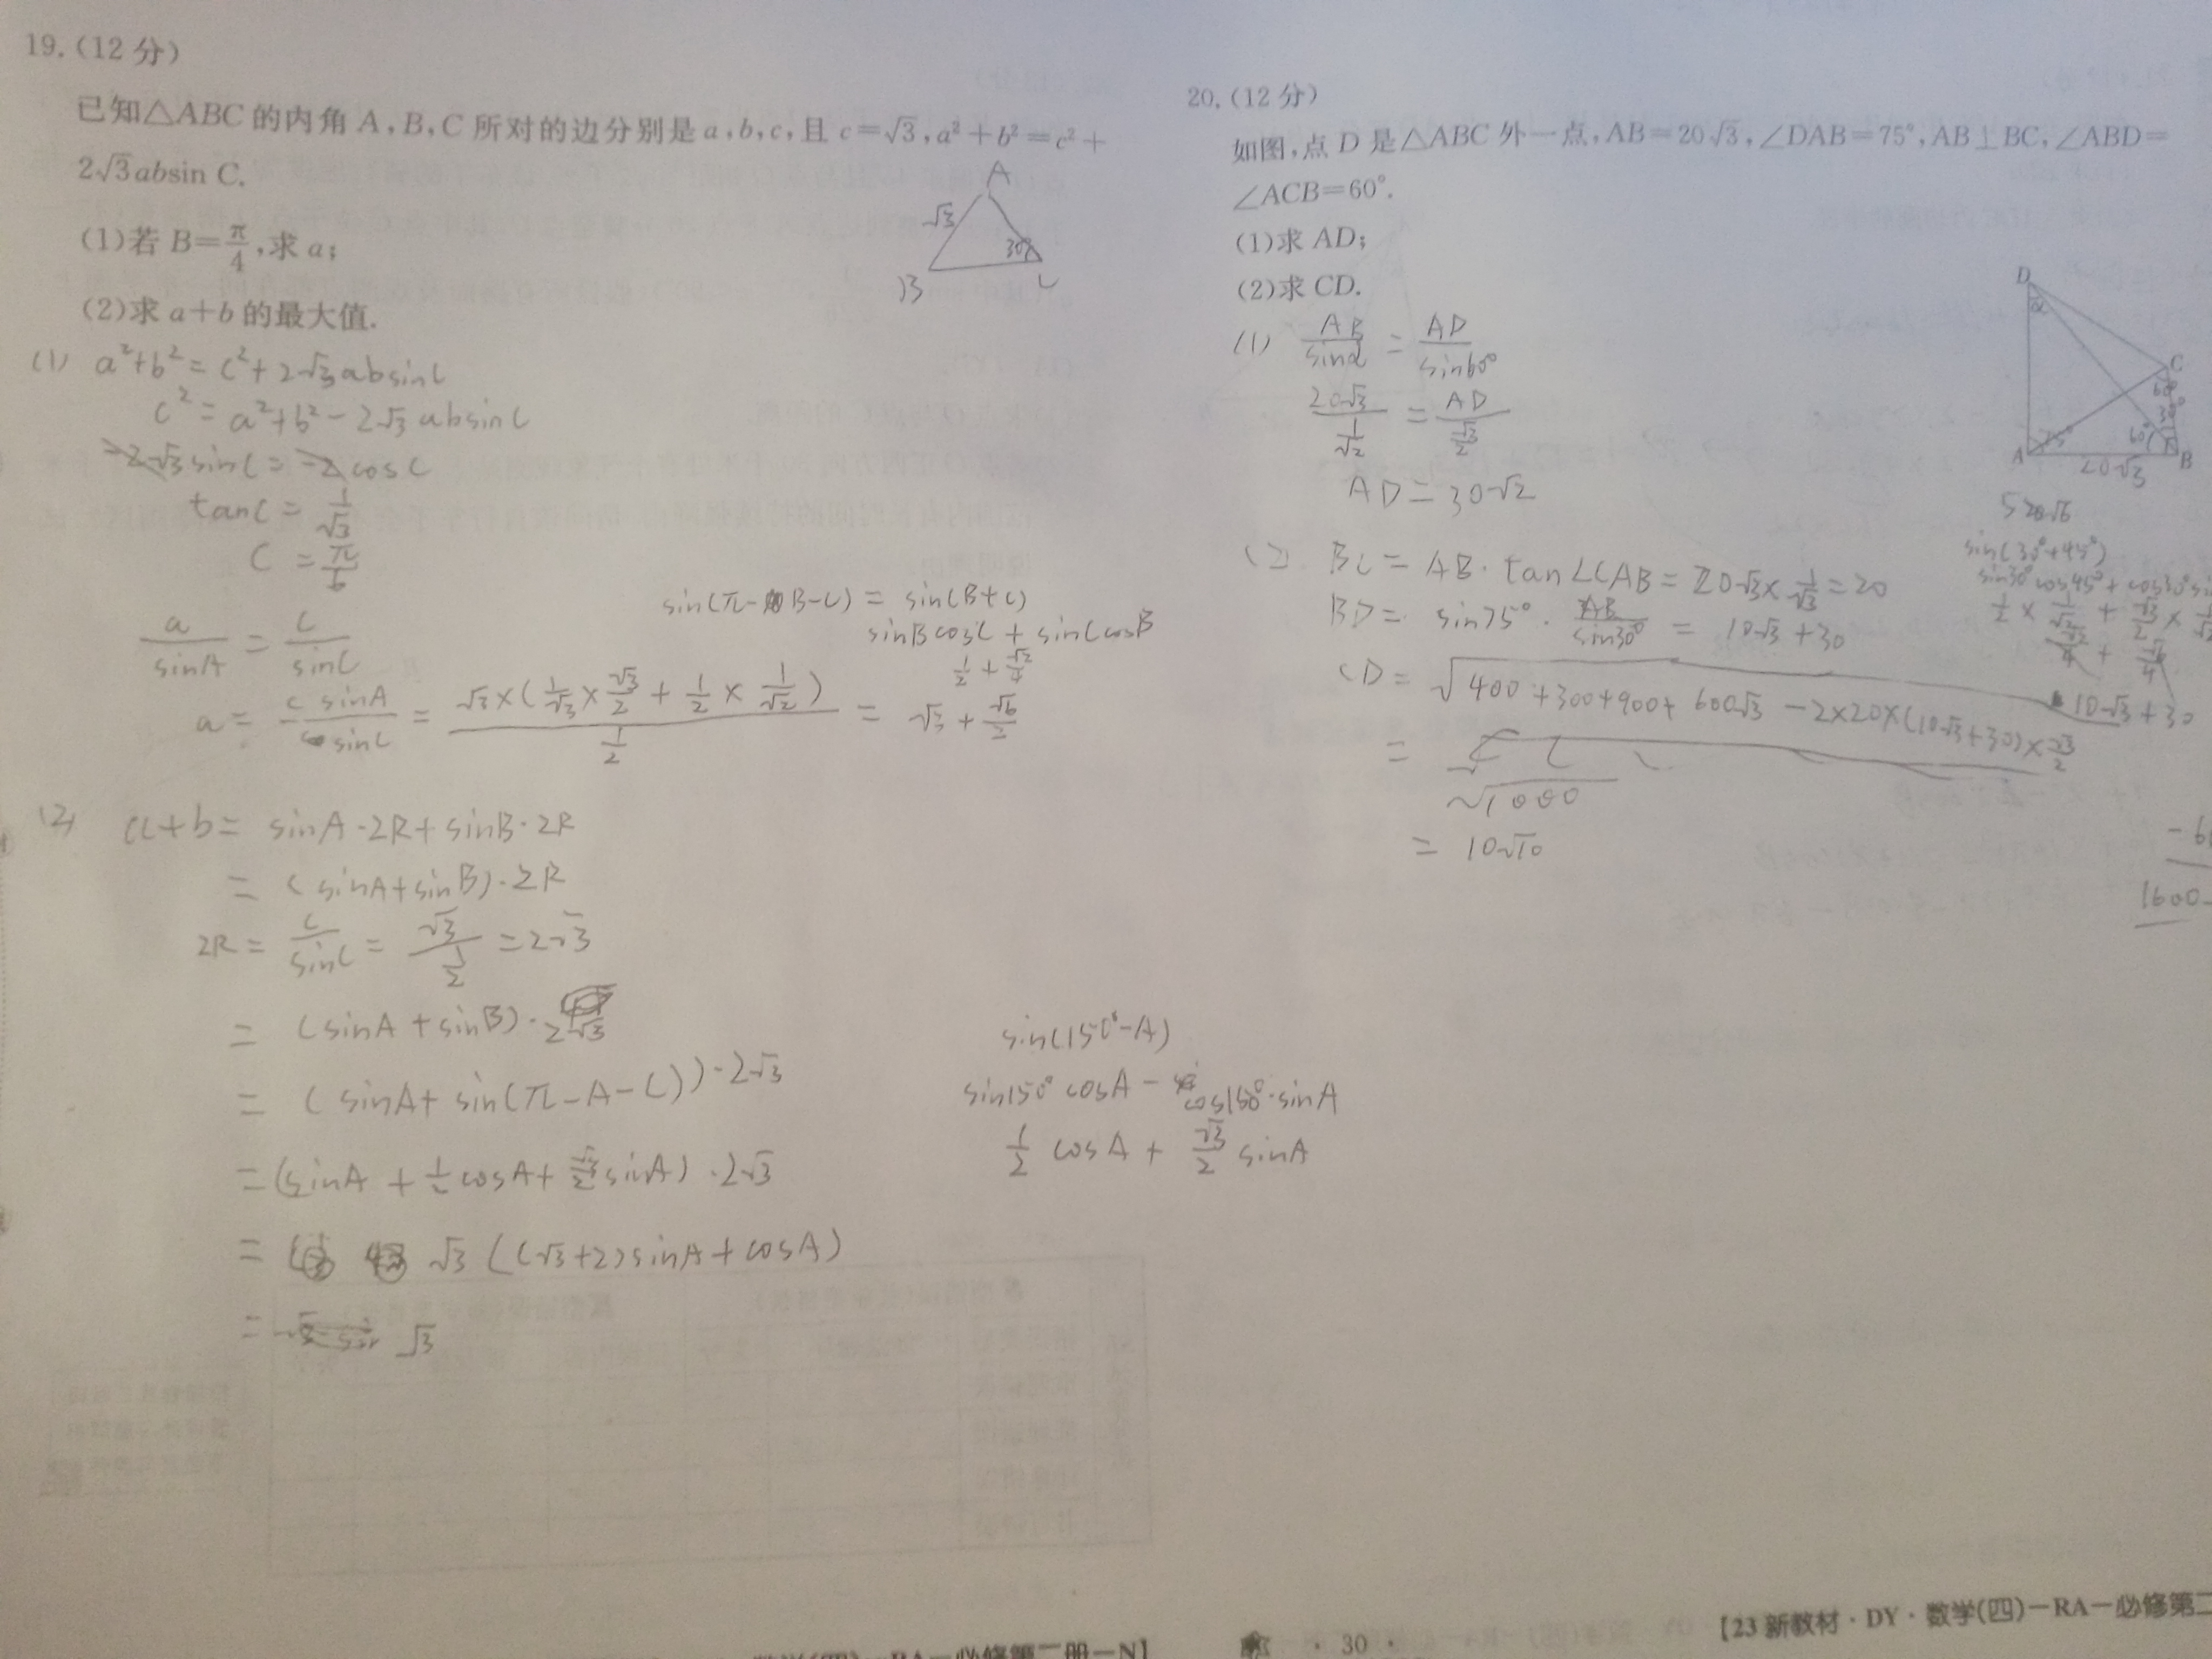 19.(12分)
已知△ABC的内角A,B,C所对的边分别是a,b,c,且c=√3,a²+b²=c²+
2√3absin C.
(1)若B=π/4,求a;
(2)求a+b的最大值.
A
√3
30°
B
C
(1) a²+b²=c²+2√3absinC
c²=a²+b²-2√3absinC
-2√3sinC=-2cosC
tanC=1/√3
C=π/6
sin(π-B-C)=sin(B+C)
sinBcosC+sinCcosB
1/2+√2/4
a/sinA=c/sinC
a=c sinA/sinC=√3×(1/√3×√3/2+1/2×1/√2)/(1/2)=√3+√6/2
(2) a+b=sinA·2R+sinB·2R
=(sinA+sinB)·2R
2R=c/sinC=√3/(1/2)=2√3
=(sinA+sinB)·2√3
=(sinA+sin(π-A-C))·2√3
=(sinA+1/2cosA+√3/2sinA)·2√3
=√3((√3+2)sinA+cosA)
=√3
sin(150°-A)
sin150°cosA-cos150°·sinA
1/2cosA+√3/2sinA
20.(12分)
如图,点D是△ABC外一点,AB=20√3,∠DAB=75°,AB⊥BC,∠ABD=
∠ACB=60°.
(1)求AD;
(2)求CD.
D
α
C
60°
30°
75°
60°
A
20√3
B
(1) AB/sinα=AD/sin60°
20√3/(1/√2)=AD/(√3/2)
AD=30√2
(2) BC=AB·tan∠CAB=20√3×1/√3=20
BD=sin75°·AB/sin30°=10√3+30
CD=√(400+300+900+600√3-2×20×(10√3+30)×√3/2)
=√1000
=10√10
sin(30°+45°)
sin30°cos45°+cos30°
1/2×1/√2+√3/2×
√2/4+√6/4
10√3+30
1600-
·30·
【23新教材·DY·数学(四)-RA-必修第二
必修第二册-N】